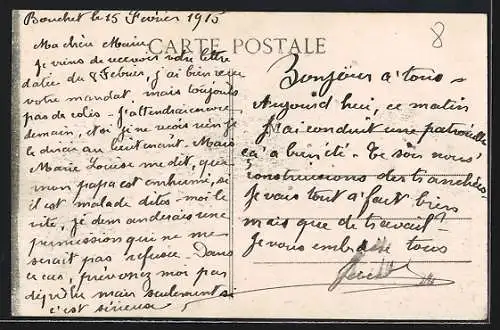 Bouchet le 15 Février 1915
CARTE POSTALE
8
Ma chère Marie
Je viens de recevoir votre lettre
datée du 8 Febrier, j'ai bien reçu
votre mandat mais toujours
pas de colis - J'attendrai encore
demain, et si je ne reçois rien je
le dirai au lieutenant. Mais
Marie Louise me dit, que
mon papa est enrhumé, si
il est malade dites-moi le
vite, je demanderais une
permission qui ne me
serait pas refusée. Dans
ce cas, prévenez moi par
dépêche mais seulement si
c'est sérieux
Bonjour à tous
Aujourd'hui, ce matin
J'ai conduit une patrouille
ça a bien été. Ce soir nous
construisons des tranchées
Je vais tout à fait bien
mais que de travail
Je vous embrasse tous